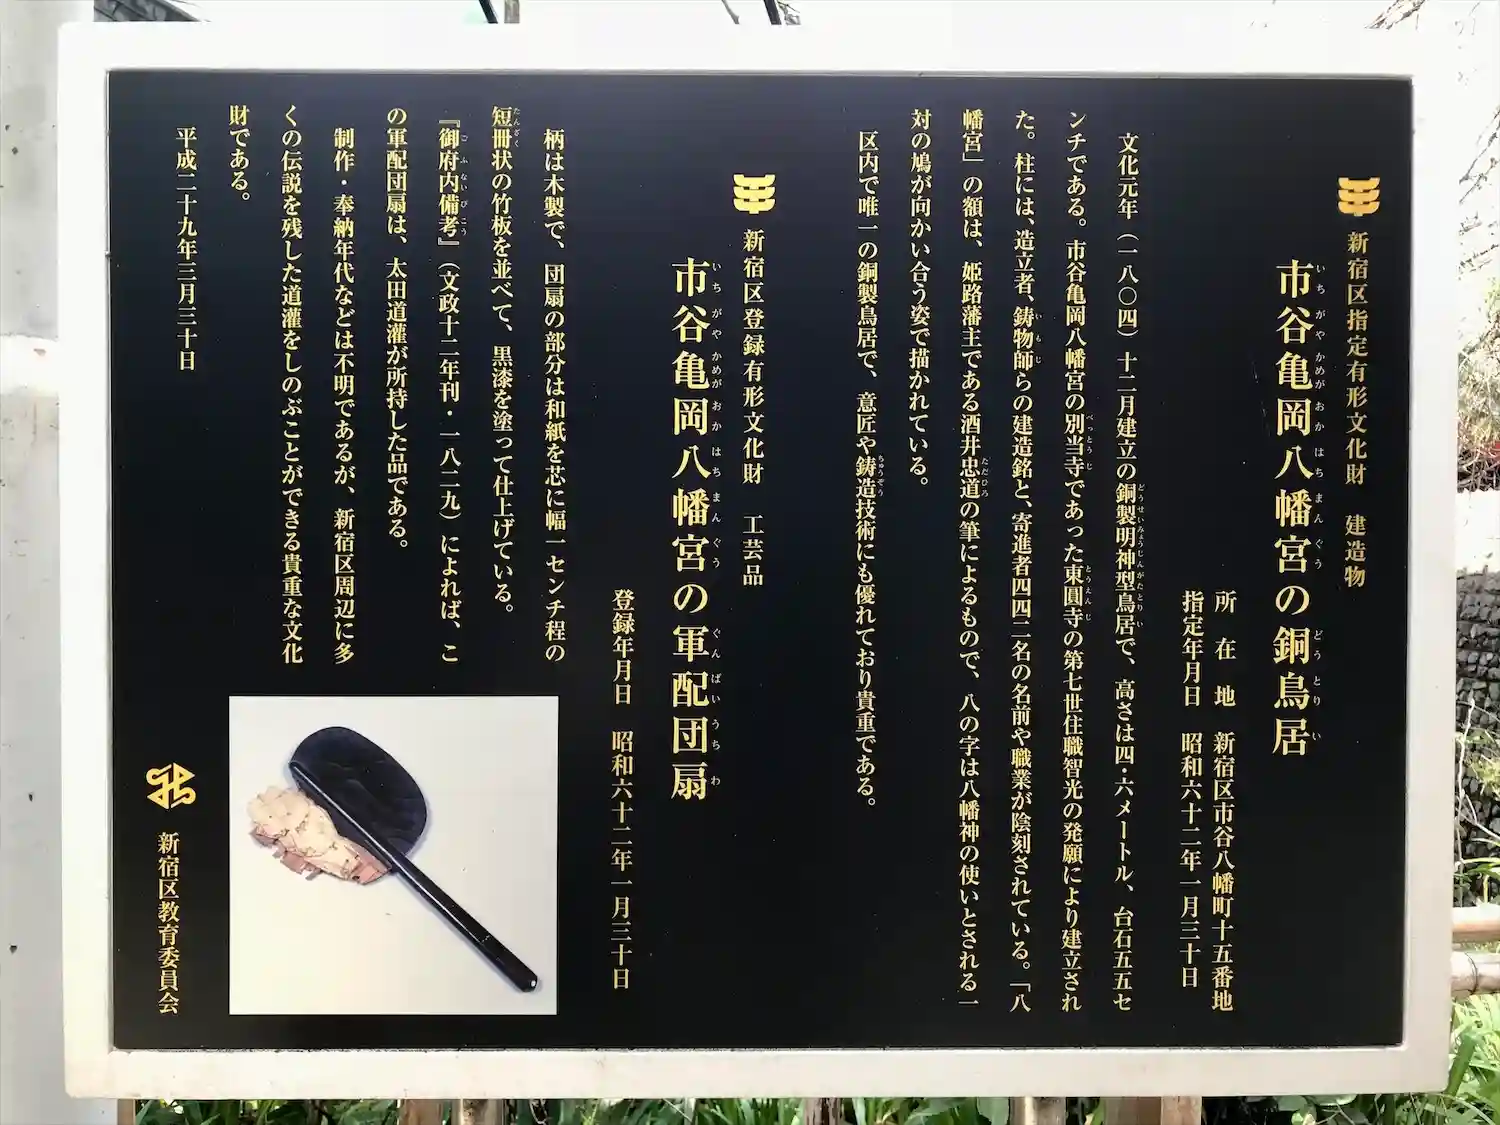 新宿区指定有形文化財　建造物
市谷亀岡八幡宮の銅鳥居
いちがやかめがおかはちまんぐう　どうとりい
所在地　新宿区市谷八幡町十五番地
指定年月日　昭和六十二年一月三十日
文化元年（一八〇四）十二月建立の銅製明神型鳥居で、高さは四・六メートル、台石五五セ
どうせいみょうじんがたとりい
ンチである。市谷亀岡八幡宮の別当寺であった東圓寺の第七世住職智光の発願により建立され
べっとうじ　とうえんじ
た。柱には、造立者、鋳物師らの建造銘と、寄進者四四二名の名前や職業が陰刻されている。「八
いもじ
幡宮」の額は、姫路藩主である酒井忠道の筆によるもので、八の字は八幡神の使いとされる一
ただひろ
対の鳩が向かい合う姿で描かれている。
区内で唯一の銅製鳥居で、意匠や鋳造技術にも優れており貴重である。
ちゅうぞう
新宿区登録有形文化財　工芸品
市谷亀岡八幡宮の軍配団扇
いちがやかめがおかはちまんぐう　ぐんばいうちわ
登録年月日　昭和六十二年一月三十日
柄は木製で、団扇の部分は和紙を芯に幅一センチ程の
短冊状の竹板を並べて、黒漆を塗って仕上げている。
たんざく
『御府内備考』（文政十二年刊・一八二九）によれば、こ
ごふないびこう
の軍配団扇は、太田道灌が所持した品である。
制作・奉納年代などは不明であるが、新宿区周辺に多
くの伝説を残した道灌をしのぶことができる貴重な文化
財である。
平成二十九年三月三十日
新宿区教育委員会